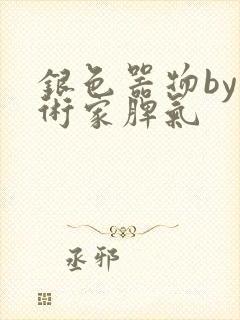 銀色器物by
術家脾氣
丞邪